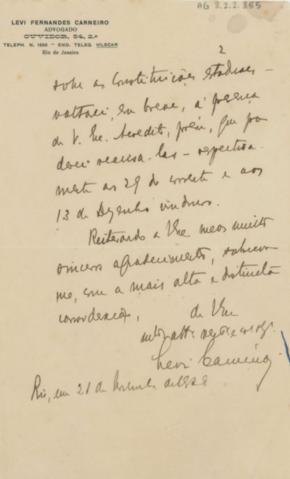 LEVI FERNANDES CARNEIRO
ADVOGADO
OUVIDOR, 54, 2.º
TELEPH. N. 1650 - END. TELEG. VILSCAR
Rio de Janeiro
AG 3.2.2.365
2
sobre as Constituições estadoaes -
voltarei, em breve, á presença
de V. Ex. Acredito, porém, que poderei
realisa-las - respectiva-
mente aos 29 do corrente e aos
13 de Dezembro vindouro.
Reiterando a V Ex meus muito
sinceros agradecimentos, subscrevo-
me, com a mais alta e distincta
consideração,
de V Ex
Levi Carneiro
Rio, em 21 de Novembro de